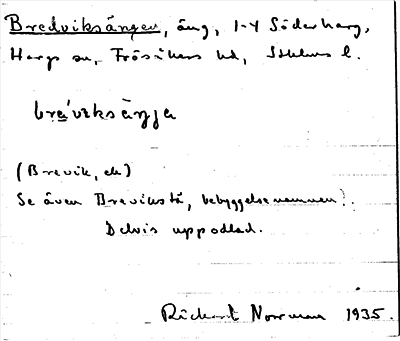 Bredviksängen, äng, 1-4 Söderharg,
Hargs sn, Frösåkers hd, Sthlms l.
bre̱´veksäŋja
(Brevik, ek)
Se även Brevikstå, bebyggelsenamnen).
Delvis uppodlad.
Rickard Norrman 1935.